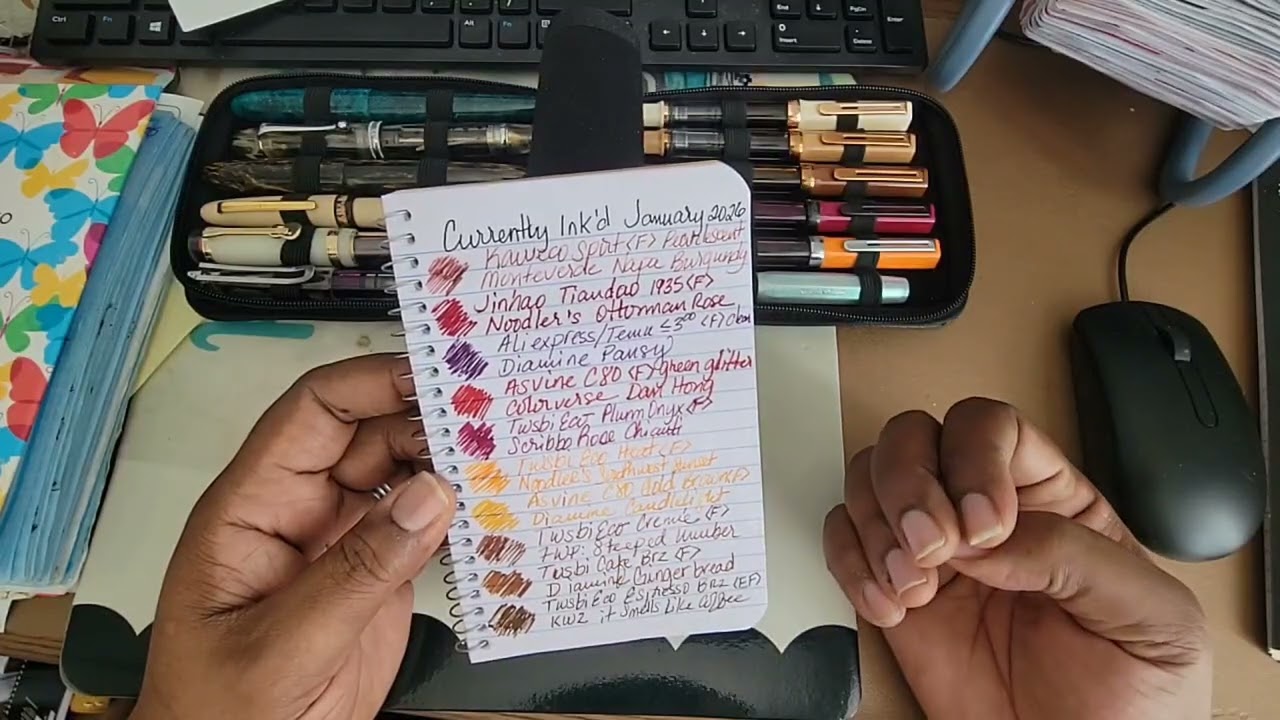 Ctrl
Fn
Alt
Fn
End
PgDn
Insert
Delete
Enter
Currently Ink'd January 2026
Kaweco Spirit (F) Pearlescent
Monteverde Napa Burgundy
Jinhao Tiandao 1935 (F)
Noodler's Ottoman Rose
Aliexpress/Temu <3⁰⁰ (F)
Diamine Pansy
Asvine C80 (F) green glitter
Colorverse Dan Hong
Twsbi Eco Plum Onyx (F)
Scribbo Rose Chianti
Twsbi Eco Heat (F)
Noodler's Southwest Sunset
Asvine C80 Gold Brown (F)
Diamine Candlelight
Twsbi Eco Creme (F)
FWP: Steeped Umber
Twsbi Cafe Brz (F)
Diamine Gingerbread
Twsbi Eco Espresso Brz (EF)
KWZ it Smells Like Coffee